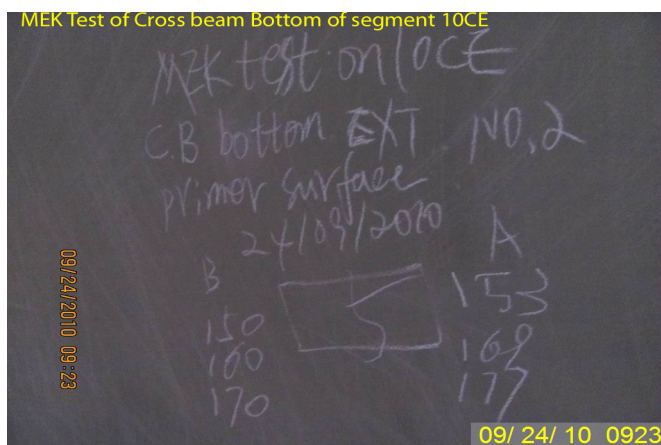 MEK Test of Cross beam Bottom of segment 10CE
MEK test on 10CE
C.B bottom EXT NO.2
primer surface
24/09/2010
B A
150 153
160 169
170 177
5
09/24/2010 09:23
09/ 24/ 10 0923